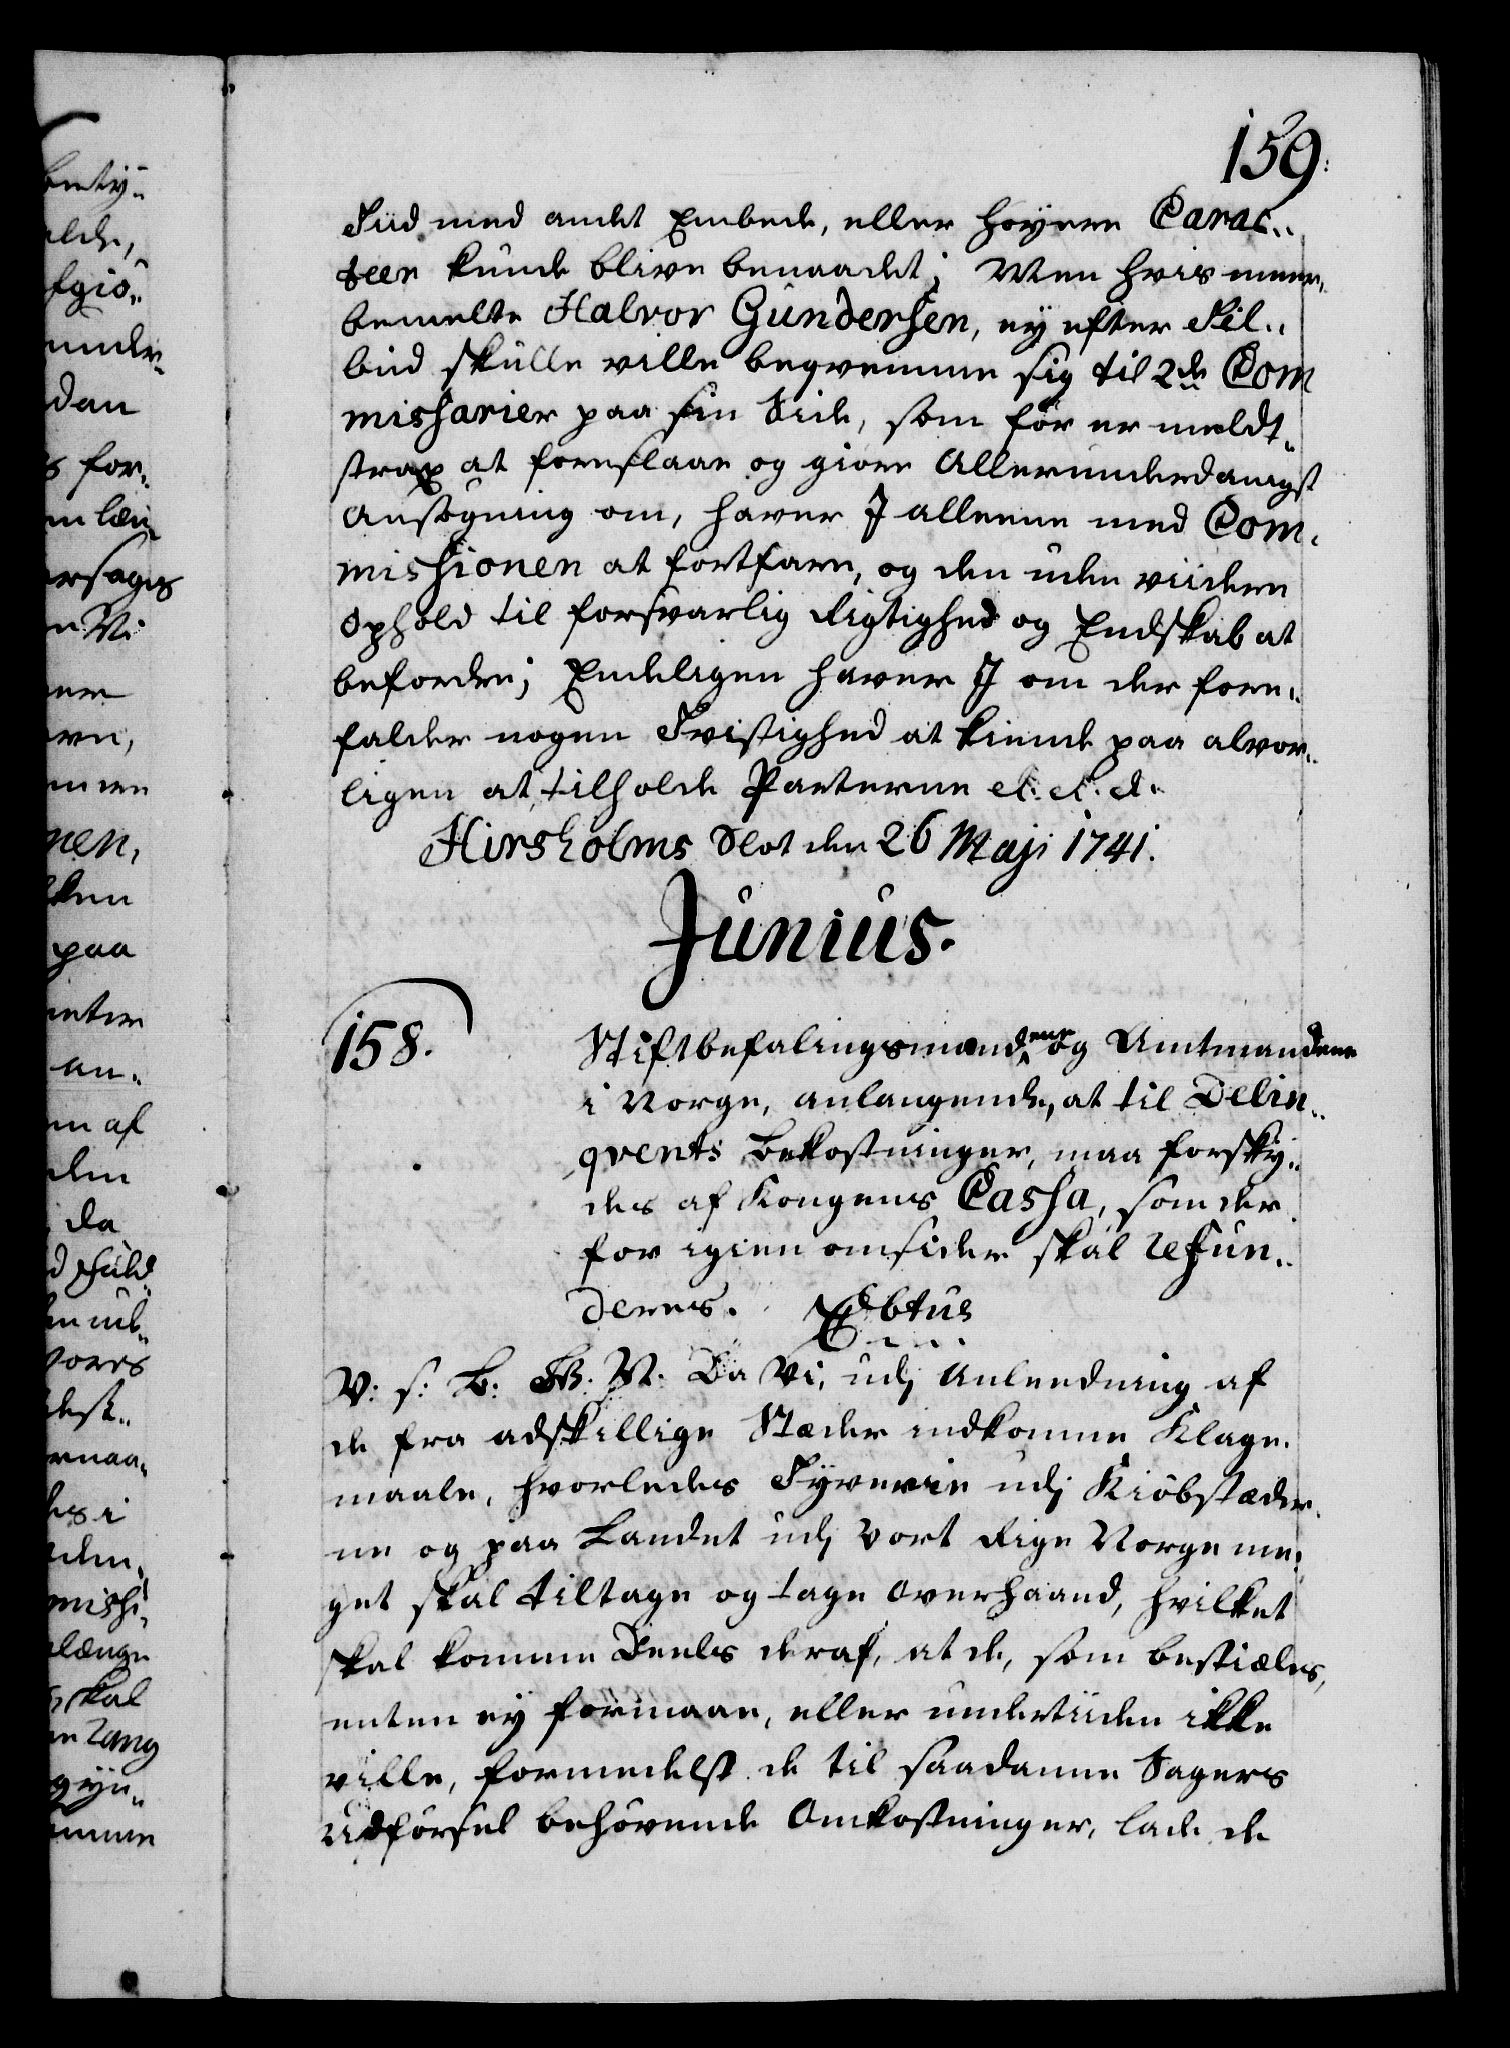 159.
Tiid med andet Embede, eller høyere Carac„
teer kunde blive benaadet; Men hvis meer„
bemelte Halvor Gundersen, ey efter Til„
bud skulle ville beqvemme sig til 2de Com
missarier paa sin Side, som før er meldt„
strax at foreslaae og giøre Allerunderdanigst
Ansøgning om, haver I alleene med Com„
missionen at fortfare, og den uden viidere
Ophold til forsvarlig Rigtighed og Endskab at
befordre; Endeligen haver I om der fore„
falder nogen Tvistighed at kiende paa alvor„
ligen at tilholde Parterne
Hirsholms Slot den 26 Maji 1741.
Junius.
158.
Stiftbefalingsmændene og Amtmændene
i Norge, anlangende, at til Delin„
qvents Bekostninger, maa forsky„
des af Kongens Cassa, som der
for igien omsider skal refun„
deres.
V: s: B: G. V. Da Vi, udj Anleedning af
de fra adskillige Stæder indkomne Klage„
maale, hvorledes Tyverie udj Kiøbstæder„
ne og paa Landet udj Vort Rige Norge me„
get skal tiltage og tage Overhaand, hvilket
skal komme Deels deraf, at de, som bestiæles,
enten ey formaae, eller undertiiden ikke
ville, formedelst de til saadanne Sagers
Udførsel behøvende Omkostninger, lade de